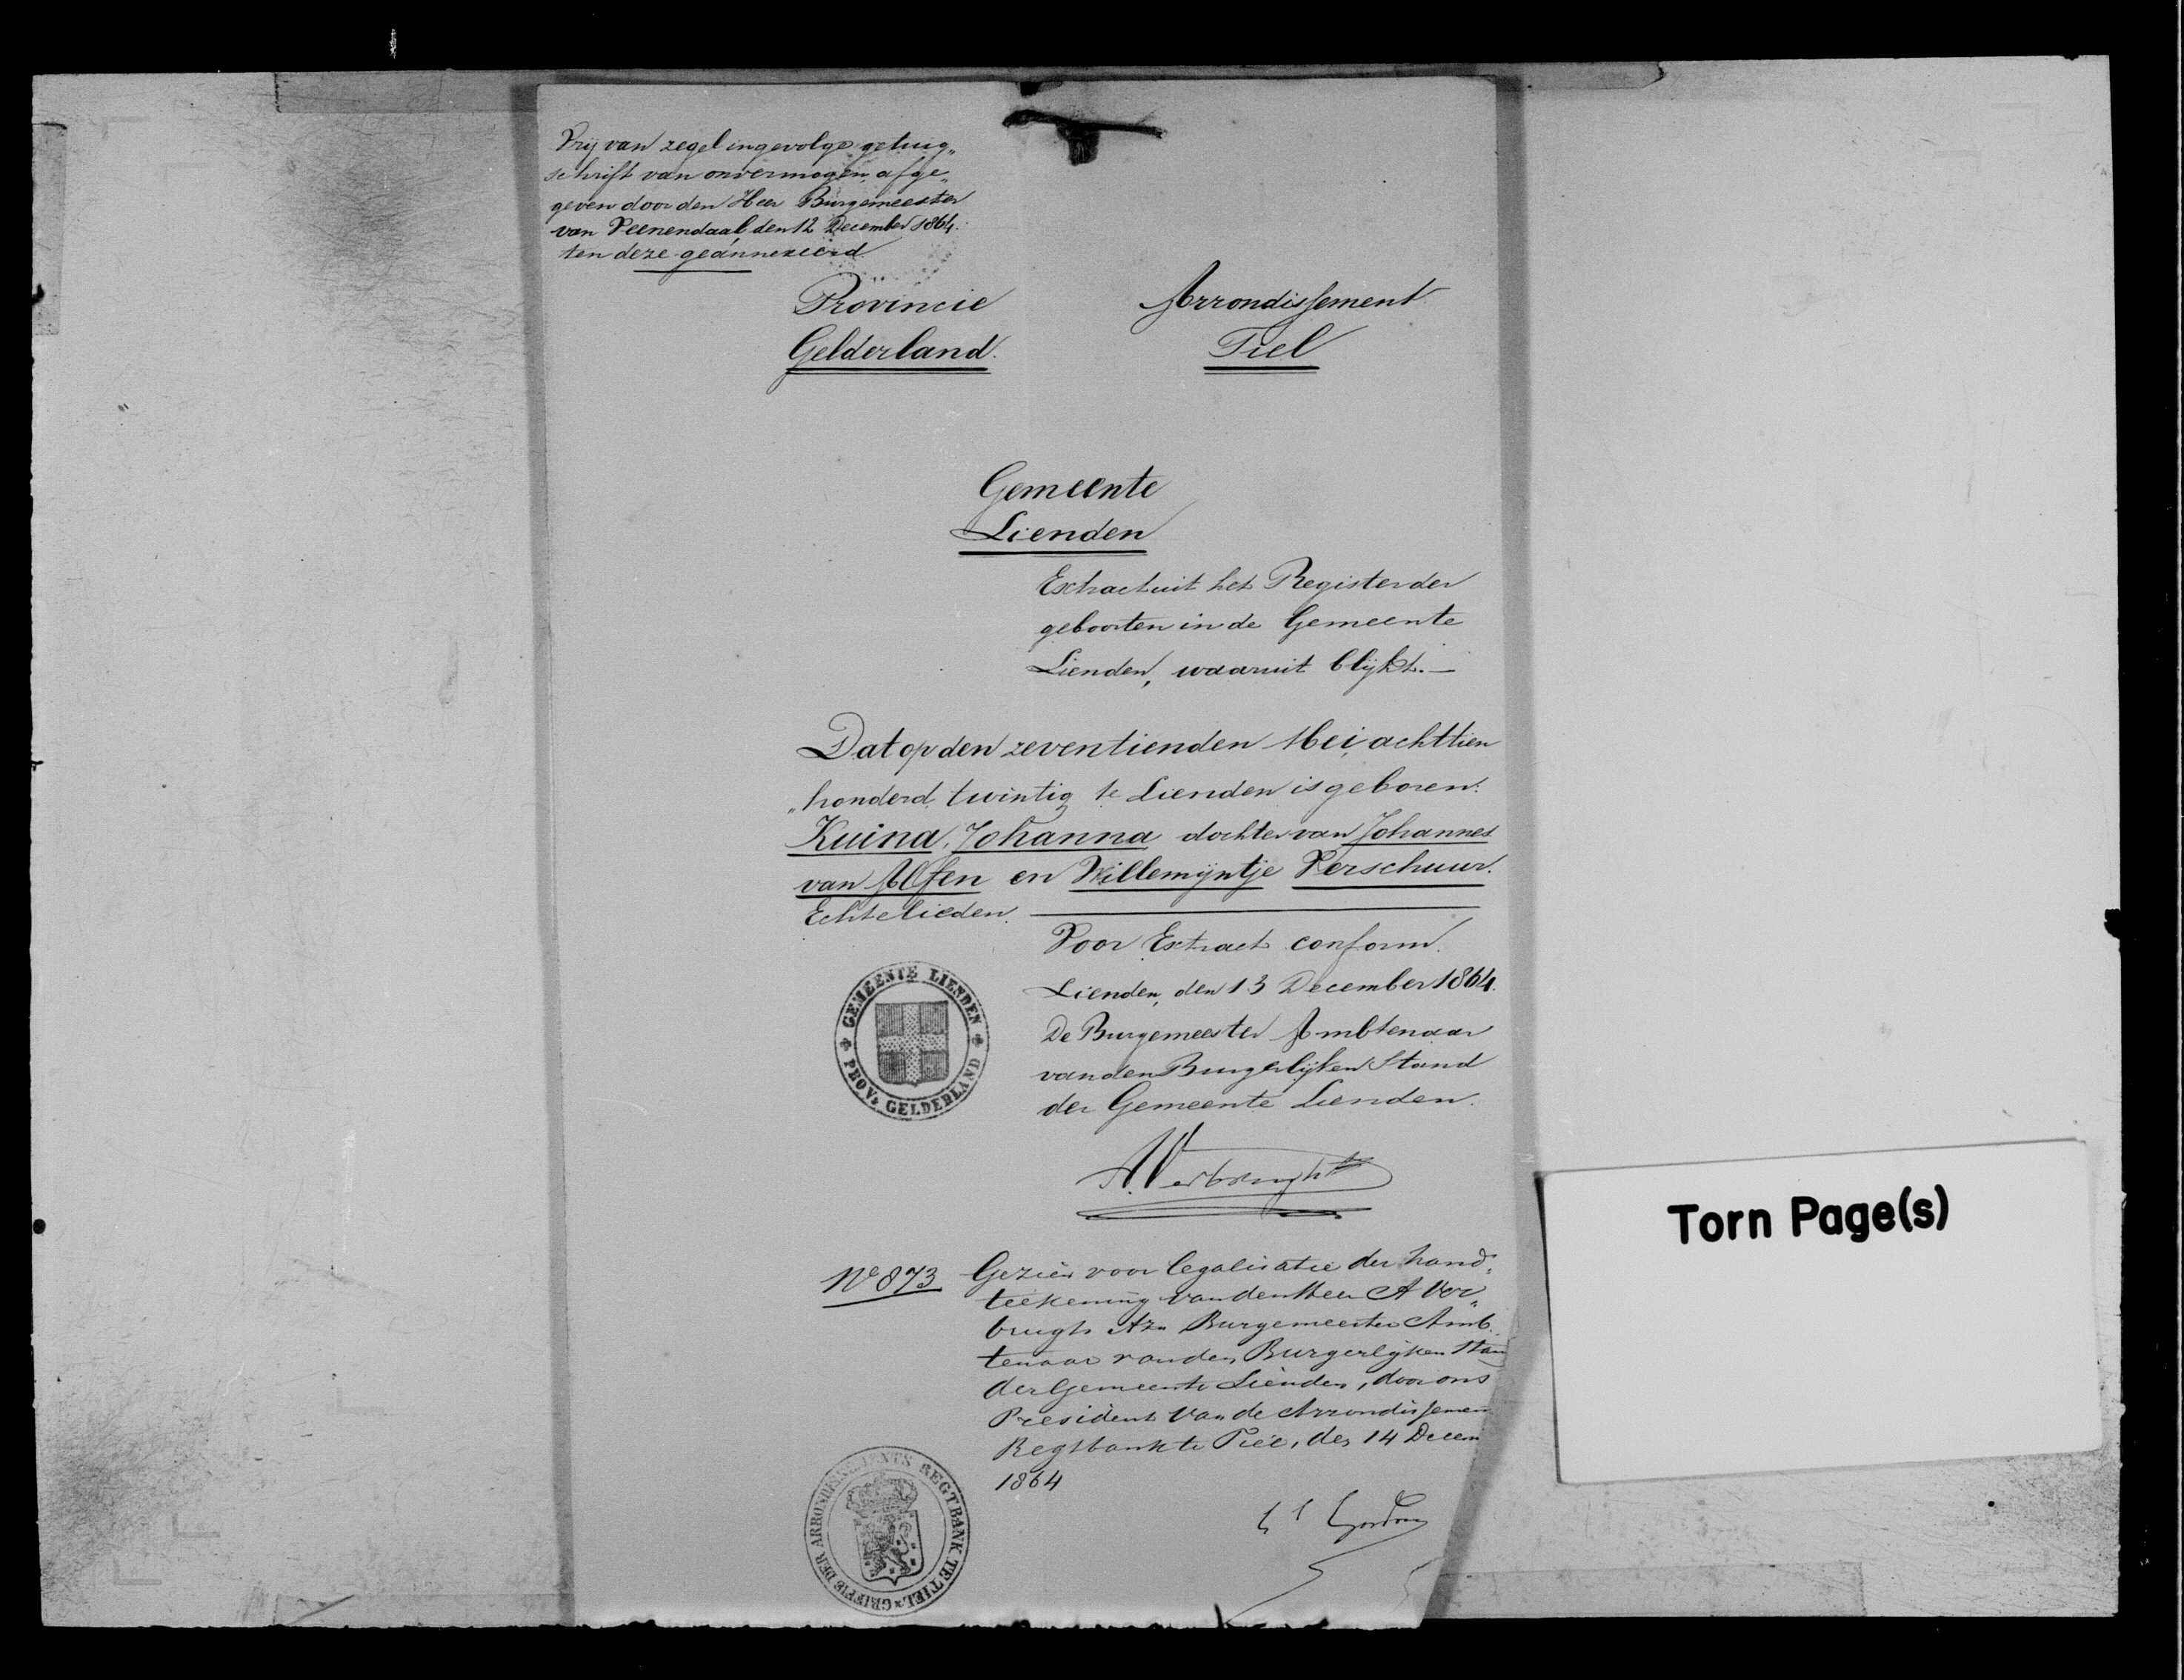 Vrij van zegel ingevolge getuig„
schrift van onvermogen, afge„
geven door den Heer Burgemeester
van Veenendaal den 12 December 1864.
ten deze geännexeerd
Provincie
Gelderland.
Arrondissement
Tiel
Gemeente
Lienden
Extract uit het Register der
geboorten in de Gemeente
Lienden, waaruit blijkt.—
Dat op den zeventienden Mei, achttien
„honderd twintig te Lienden is geboren:
Kuina, Johanna dochter van Johannes
van Alfen en Willemijntje Verschuur.
Echtelieden.
Voor Extract conform.
Lienden, den 13 December 1864.
De Burgemeester Ambtenaar
van den Burgerlijken Stand
der Gemeente Lienden.
GEMEENTE LIENDEN
PROV: GELDERLAND
A. Verbrugh
No 873
Gezien voor legalisatie der hand„
teekening van den Heer A Ver„
brugh Azn Burgemeester Amb„
tenaar van den Burgerlijken Stan
der Gemeente Lienden, door ons
President van de Arrondissemen
Regtbank te Tiel, den 14 Decem
1864
GRIFFIE DER ARRONDISSEMENTS REGTBANK TE TIEL
Torn Page(s)